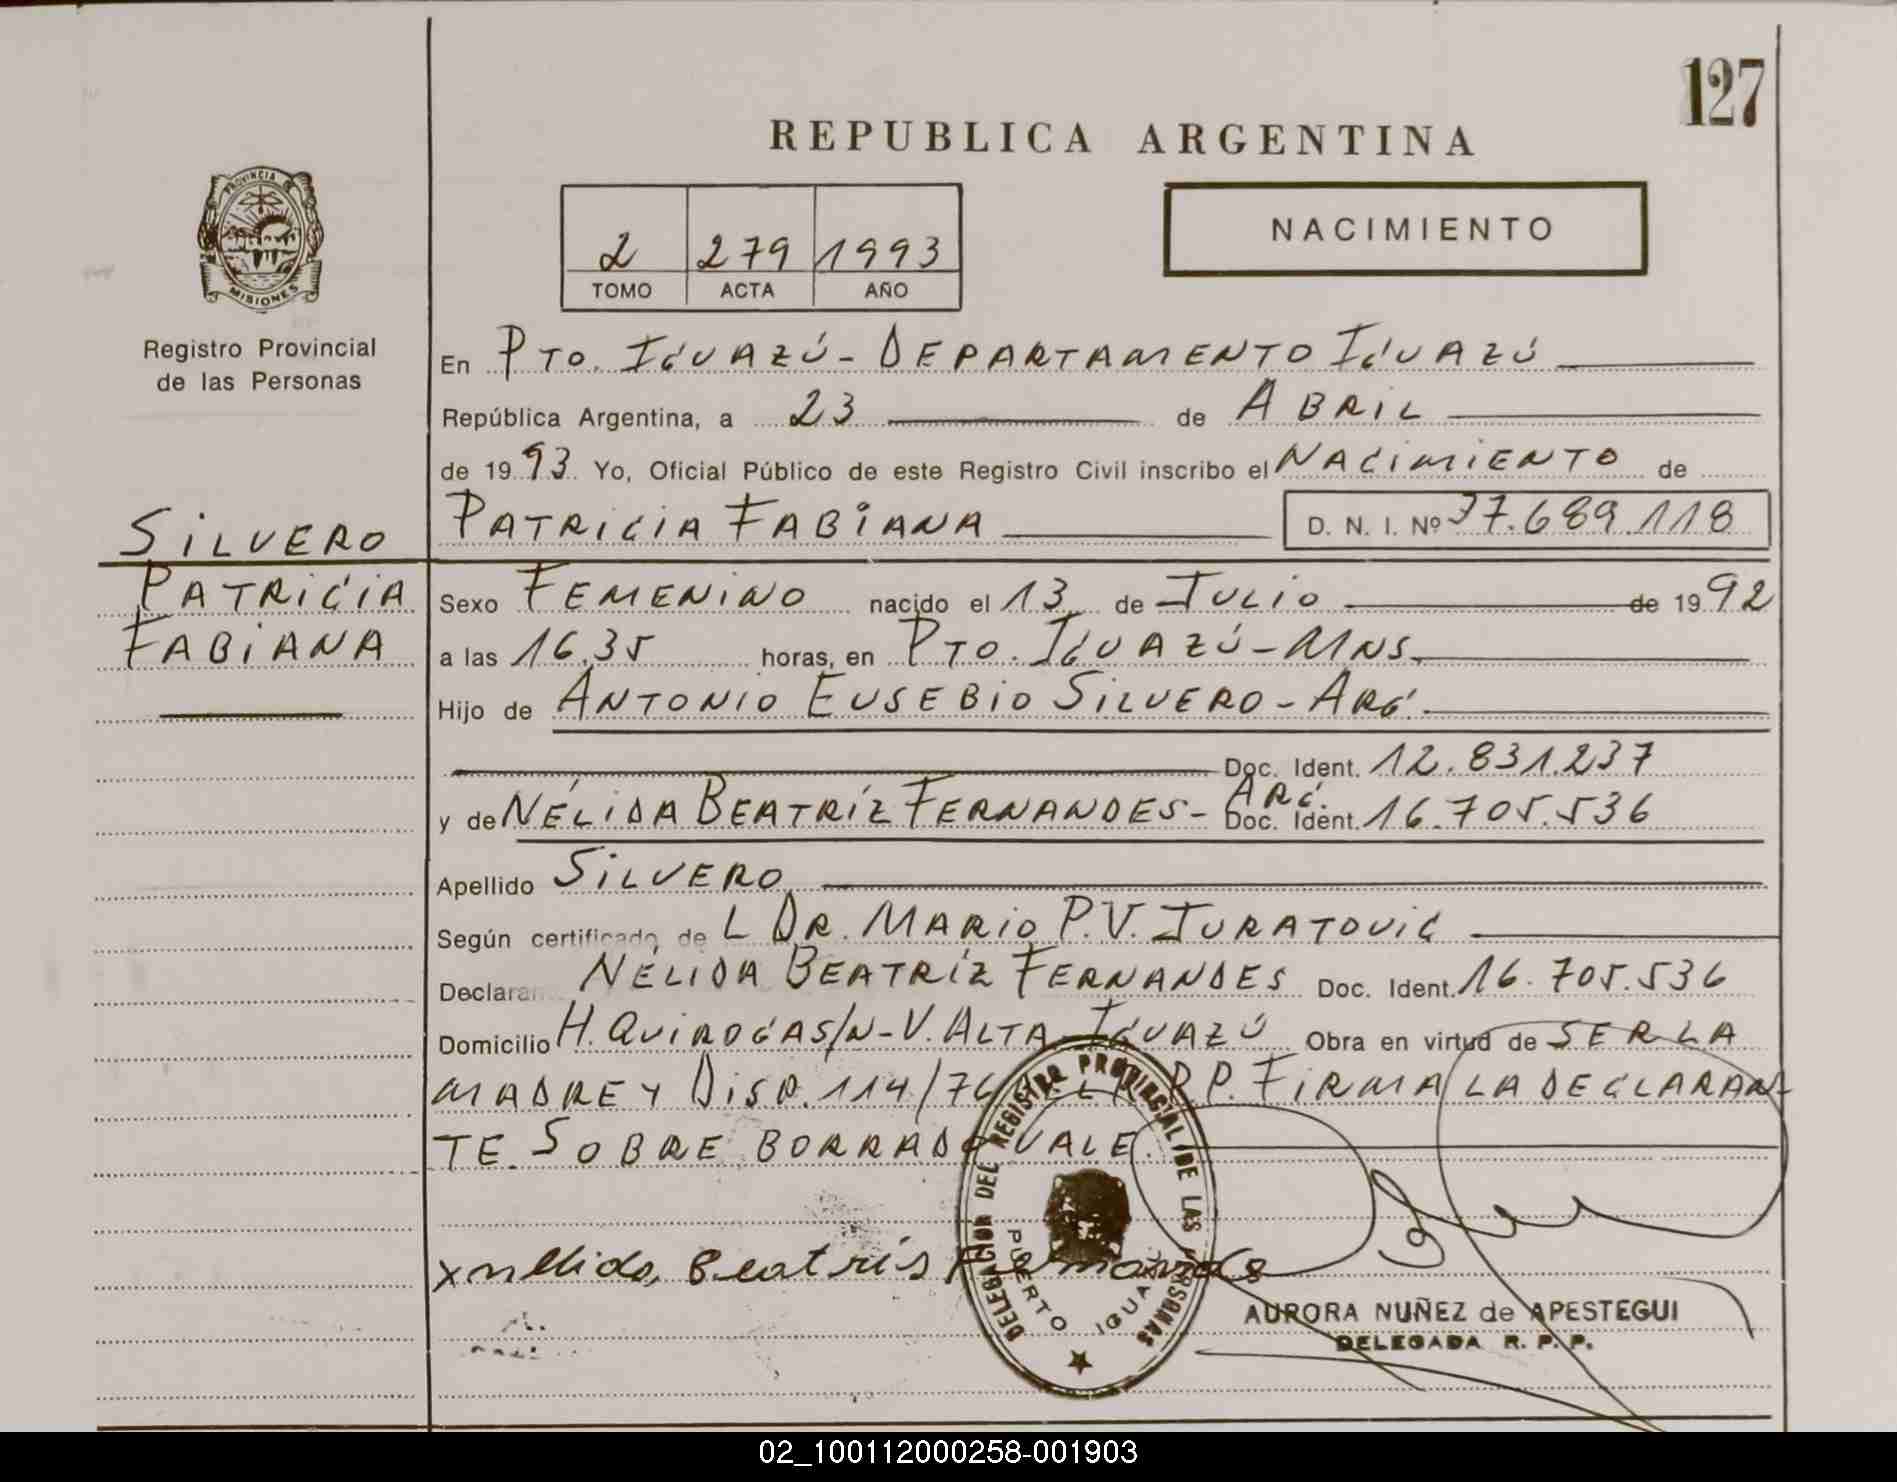 127
REPUBLICA ARGENTINA
PROVINCIA DE
MISIONES
2 279 1993
TOMO ACTA AÑO
NACIMIENTO
Registro Provincial
de las Personas
En PTO. IGUAZÚ - DEPARTAMENTO IGUAZÚ
República Argentina, a 23 de ABRIL
de 1993. Yo, Oficial Público de este Registro Civil inscribo el NACIMIENTO de
PATRICIA FABIANA D. N. I. Nº 37.689.118
SILVERO
PATRICIA
FABIANA
Sexo FEMENINO nacido el 13 de JULIO de 1992
a las 16.35 horas, en PTO. IGUAZÚ - MNS.
Hijo de ANTONIO EUSEBIO SILVERO - ARG.
Doc. Ident. 12.831.237
y de NÉLIDA BEATRÍZ FERNANDES - ARG. Doc. Ident. 16.705.536
Apellido SILVERO
Según certificado de L DR. MARIO P.V. JURATOVIC
Declara NÉLIDA BEATRÍZ FERNANDES Doc. Ident. 16.705.536
Domicilio H. QUIROGA S/N - V. ALTA - IGUAZÚ Obra en virtud de SER LA
MADRE Y DISP. 114/76 R.P. FIRMA LA DECLARAN-
TE. SOBRE BORRADO VALE.
DELEGACION DEL REGISTRO PROVINCIAL DE LAS PERSONAS
PUERTO IGUAZU
x Beatris
AURORA NUÑEZ de APESTEGUI
DELEGADA R. P. P.
02_100112000258-001903